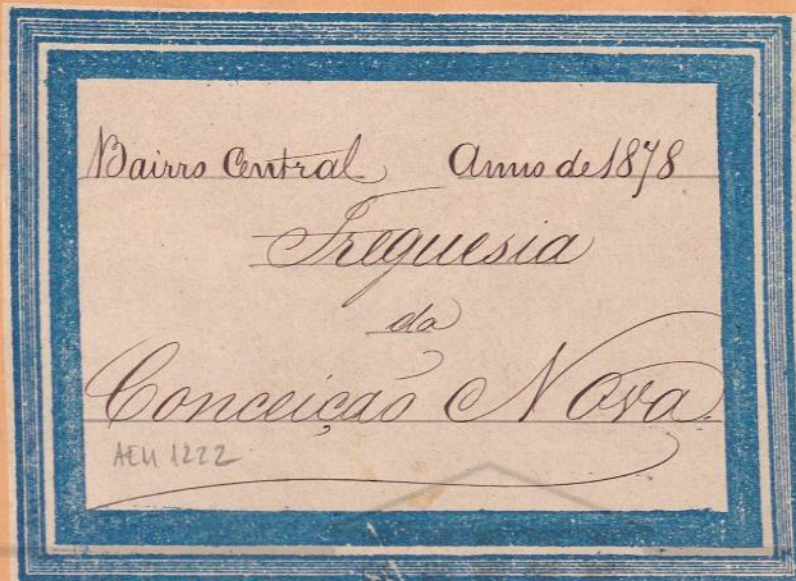 Bairro Central Anno de 1878
Freguesia
da
Conceição Nova
AEM 1222